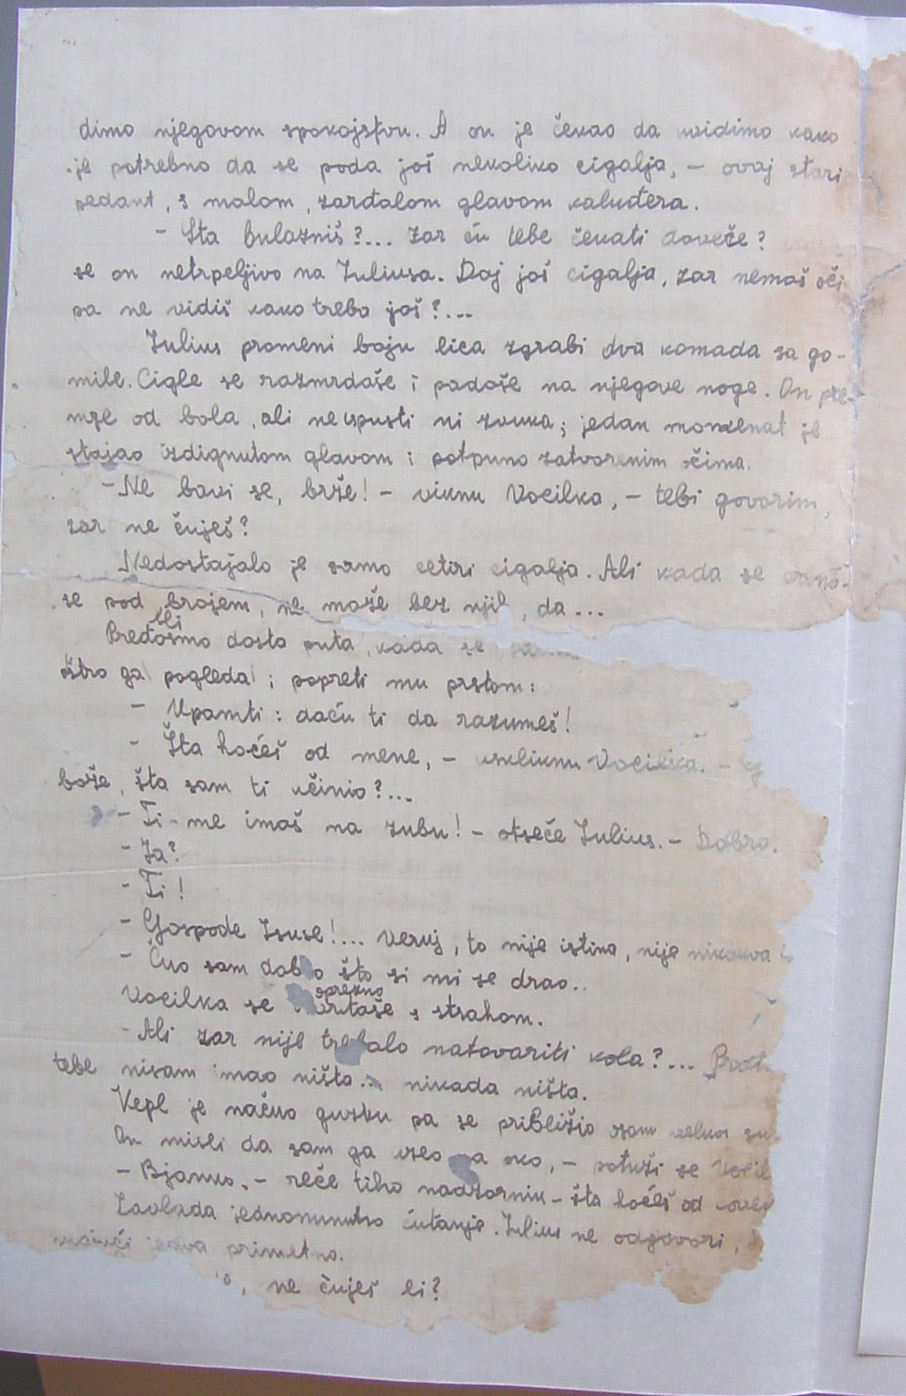 dimo njegovom spokojstvu. A on je čekao da uvidimo kako
je potrebno da se poda još nekoliko cigalja, – ovaj stari
pedant, s malom, zarđalom glavom kaluđera.
– Šta bulazniš?... Zar ću tebe čekati doveče?
se on netrpeljivo na Juliusa. Daj još cigalja, zar nemaš oči
pa ne vidiš kako treba još?...
Julius promeni boju lica zgrabi dva komada sa go-
mile. Cigle se razmrdaše i padoše na njegove noge. On pre-
mre od bola, ali ne ispusti ni zvuka; jedan momenat je
stajao izdignutom glavom i potpuno zatvorenim očima.
– Ne bavi se, brže! – viknu Vocilka, – tebi govorim,
zar ne čuješ?
Nedostajalo je samo cetiri cigalja. Ali kada se
se pod brojem, ne može bez njih, da...
Pređosmo dosta puta, kada se
štro ga pogleda i popreti mu prstom:
– Upamti: daću ti da razumeš!
– Šta hoćeš od mene, – uskliknu Vocilka. –
bože, šta sam ti učinio?...
– Ti me imaš na zubu! – otseče Julius. – Dobro.
– Ja?
– Ti!
– Gospode Isuse!... Veruj, to nije istina, nije nikakva
– Čuo sam dobro što si mi se drao..
Vocilka se oprezno s strahom.
– Ali zar nije trebalo natovariti kola?... Protiv
tebe nisam imao ništa.. nikada ništa.
Vepl je načuo gužvu pa se približio
On misli da sam ga uzeo na oko, – potuži se Vocil
– Bjanko. – reče tiho nadzornik – šta hoćeš od
Zavlada jednominutno ćutanje. Julius ne odgovori,
jedva primetno.
, ne čuješ li?